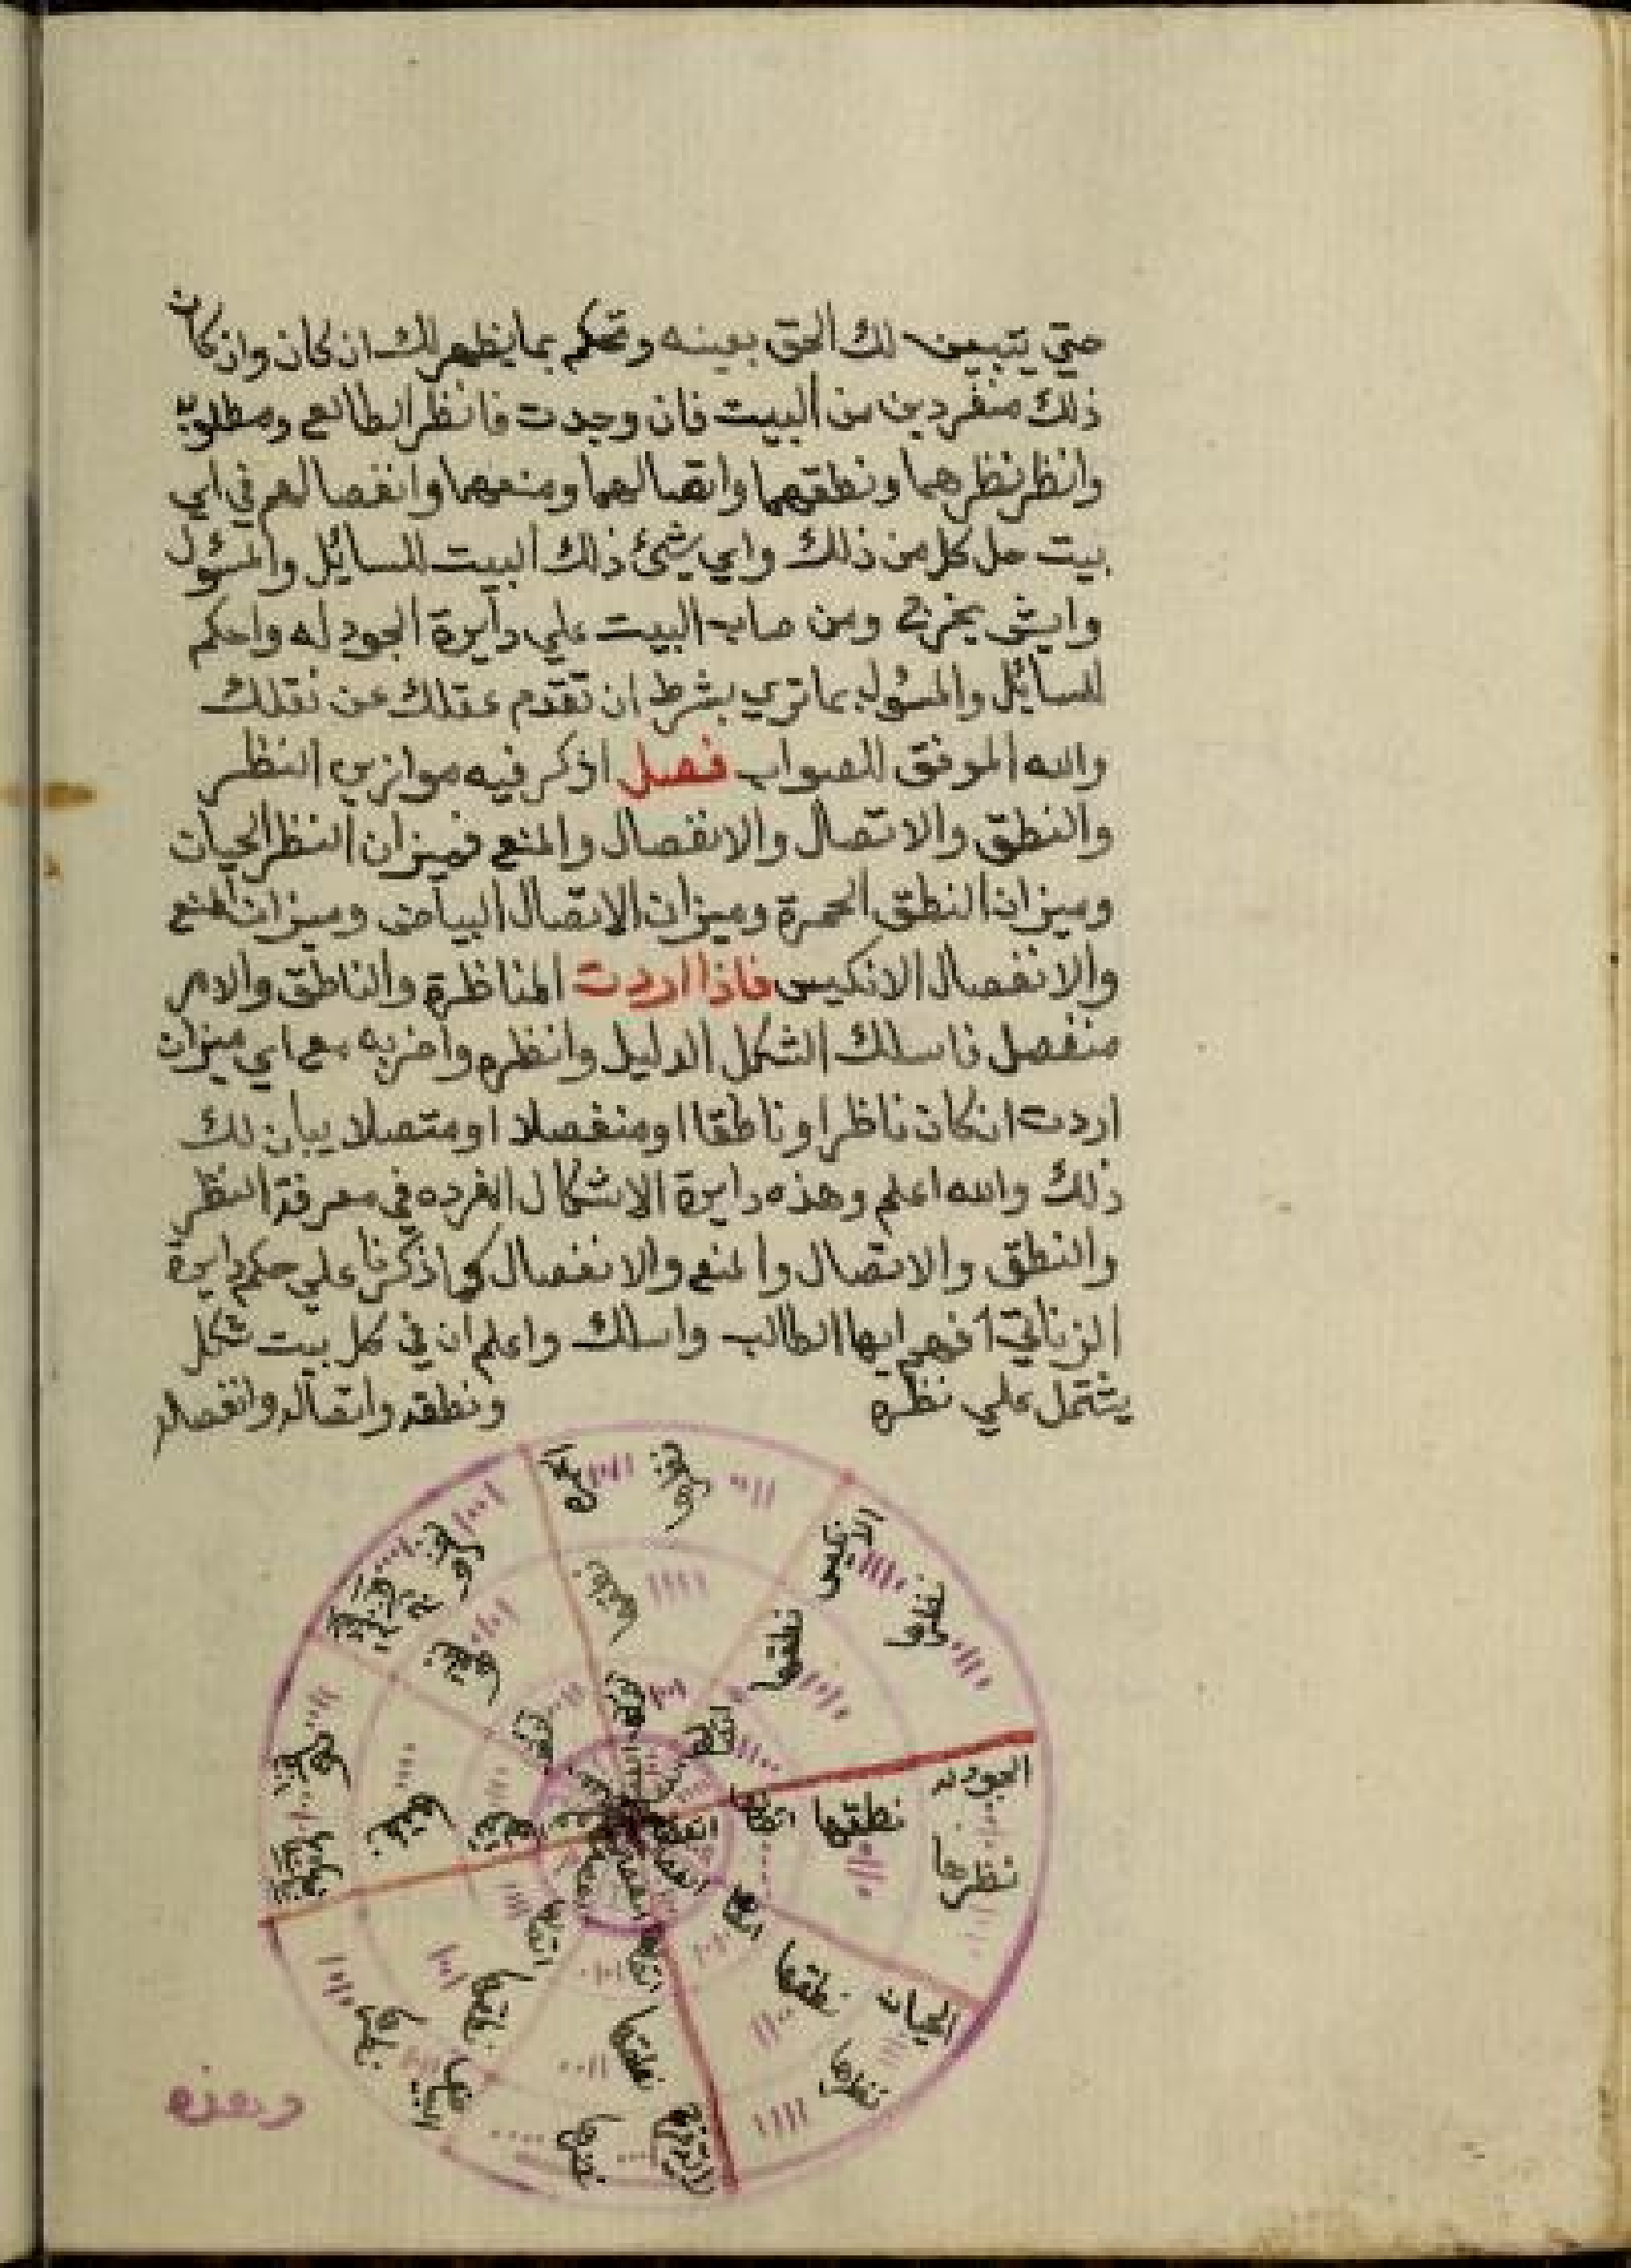 حتي يتبين لك الحق بعينه وتحكم بما يظهر لك ان كان وان كان
ذلك منفردين من البيت فان وجدت فانظر الطالع ومطلوبه
وانظر نظرهما ونطقهما واتصالهما ومنعهما وانفصالهم في اي
بيت حل كل من ذلك واي شئ ذلك البيت للسائل والمسئول
وايش يخرج ومن صاب البيت علي دايرة الجودله واحكم
للسائل والمسئول بما تري بشرط ان تقدم عقلك عن نقلك
والله الموفق للصواب فصل اذكر فيه موازين النظر
والنطق والاتصال والانفصال والمنع فميزان النظر الحيان
وميزان النطق الحمرة وميزان الاتصال البياض وميزان المنع
والانفصال الانكيس فاذا اردت المناظرة والناطق والامر
منفصل فاسلك الشكل الدليل وانظره واضربه مع اي ميزان
اردت ان كان ناظرا وناطقا او منفصلا او متصلا يبان لك
ذلك والله اعلم وهذه دايرة الاشكال الفرده في معرفة النظر
والنطق والاتصال والمنع والانفصال كما ذكرنا علي حكم دايرة
الزناتي افهم ايها الطالب واسلك واعلم ان في كل بيت شكل
يشتمل علي نظره ونطقه واتصاله وانفصاله
الحمره نظرها
نطقها
الانكيس نظرها
نطقها
الجودله
نظرها
نطقها
الحيان
نظرها
نطقها
نظرها
نطقها
البياض
نظرها
نطقها
نطقها
نطقها
وهذه